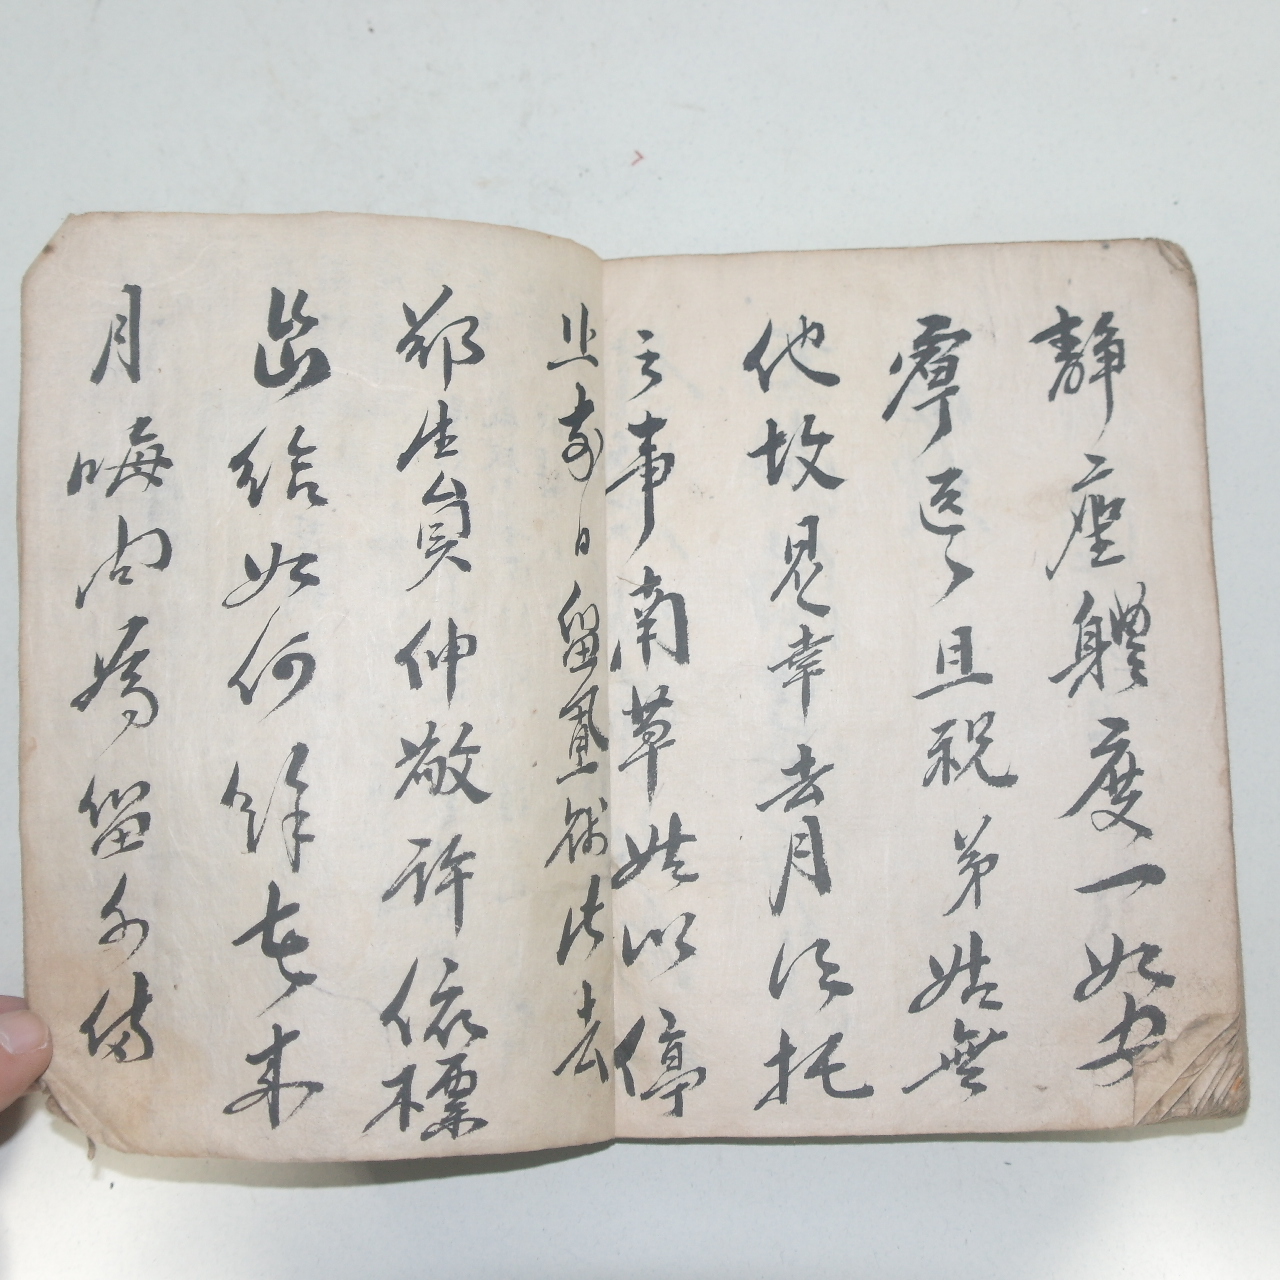 靜座體度一如安
寧區〻且祝弟姑無
他故是幸去月所托
之事南草姑以停
止前日留置錢文去
鄭生員仲敬許依標
出給如何餘在來
月晦間爲留不備